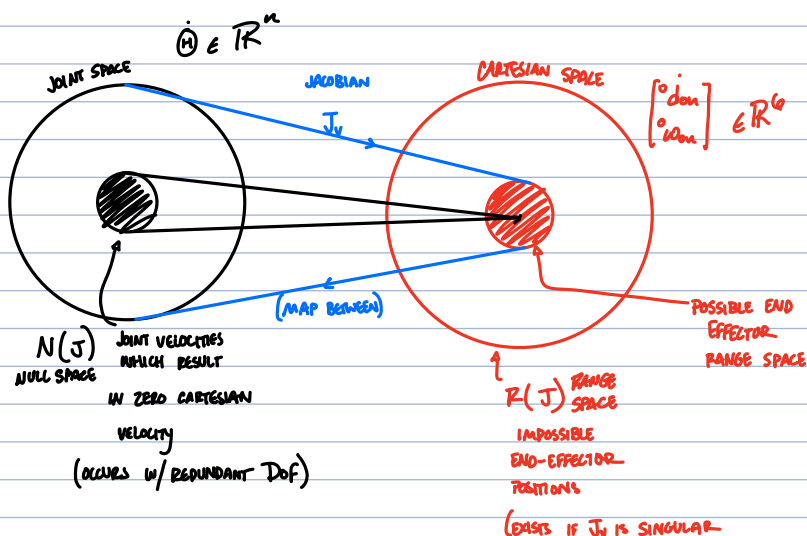 Θ̇ ∈ ℝⁿ
JOINT SPACE
JACOBIAN
Jᵥ
CARTESIAN SPACE
[⁰ḋ₀ₙ
⁰ω₀ₙ] ∈ ℝ⁶
(MAP BETWEEN)
N(J)
NULL SPACE
JOINT VELOCITIES
WHICH RESULT
IN ZERO CARTESIAN
VELOCITY
(OCCURS W/ REDUNDANT DOF)
POSSIBLE END
EFFECTOR
RANGE SPACE
R(J) RANGE
SPACE
IMPOSSIBLE
END-EFFECTOR
POSITIONS
(EXISTS IF Jᵥ IS SINGULAR